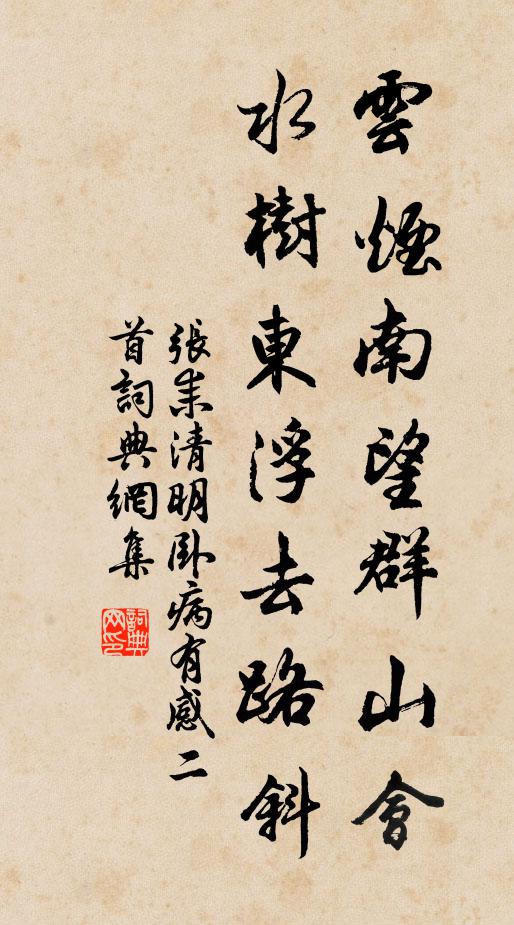 雲煙南望群山會
水樹東浮去路斜
張耒清明臥病有感二
首詞典網集
詞典
网印